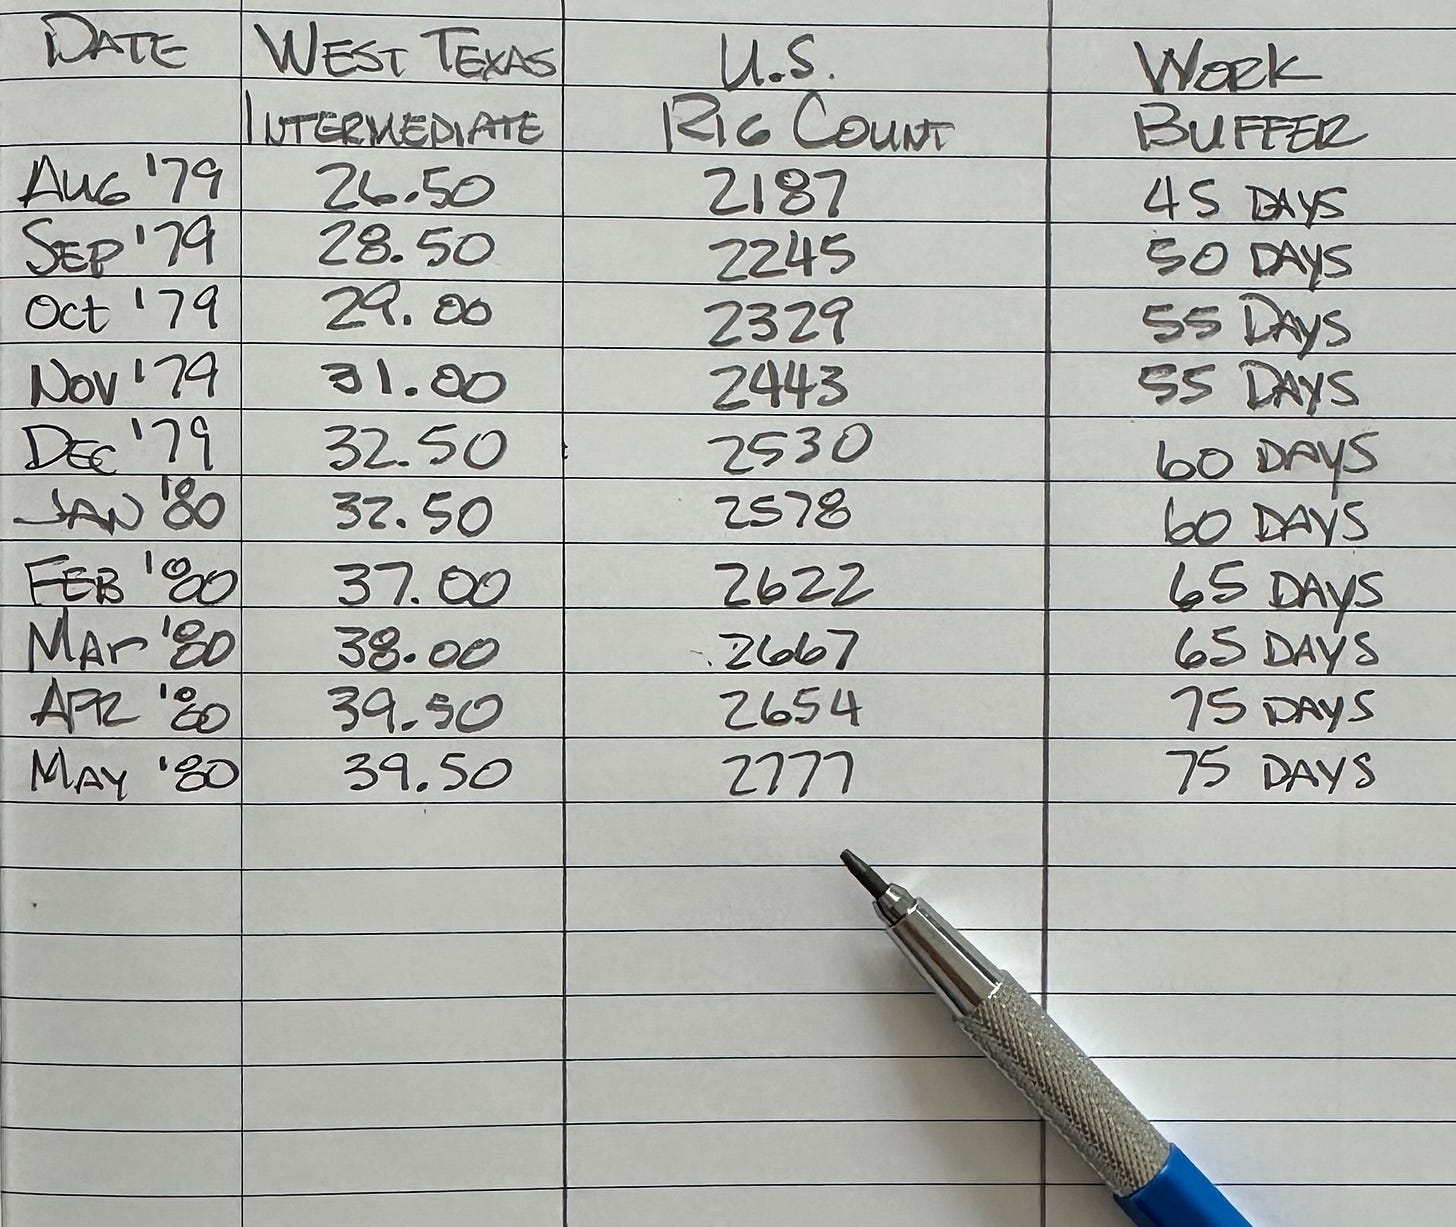 DATE WEST TEXAS U.S. WORK
INTERMEDIATE RIG COUNT BUFFER
AUG '79 26.50 2187 45 DAYS
SEP '79 28.50 2245 50 DAYS
Oct '79 29.00 2329 55 DAYS
Nov '79 31.00 2443 55 DAYS
DEC '79 32.50 2530 60 DAYS
JAN '80 32.50 2578 60 DAYS
FEB '80 37.00 2622 65 DAYS
MAr '80 38.00 2667 65 DAYS
APR '80 39.50 2654 75 DAYS
MAY '80 39.50 2777 75 DAYS